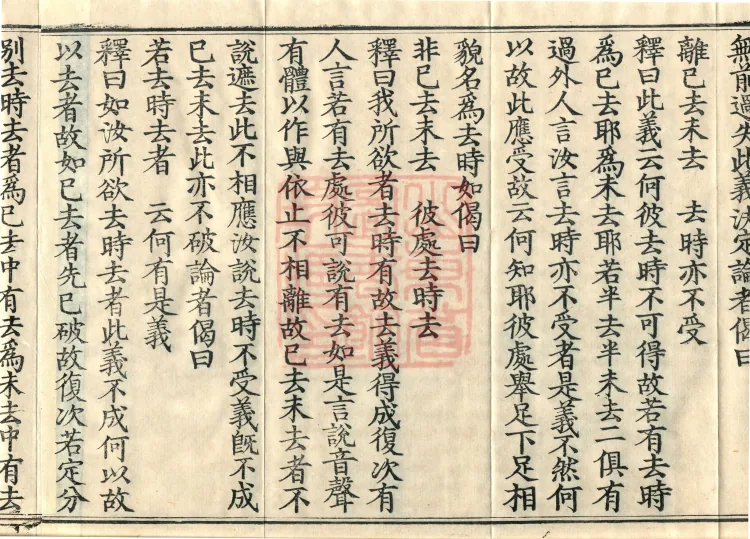 無前過先此義汝定論者偈曰
離已去未去　去時亦不受
釋曰此義云何彼去時不可得故若有去時
為已去耶為未去耶若半去半未去二俱有
過外人言汝言去時亦不受者是義不然何
以故此應受故云何知耶彼處舉足下足相
貌名為去時如偈曰
非已去未去　彼處去時去
釋曰我所欲者去時有故去義得成復次有
人言若有去處彼可說有去如是言說音聲
有體以作與依止不相離故已去未去者不
說遮去此不相應汝說去時不受義既不成
已去未去此亦不破論者偈曰
若去時去者　云何有是義
釋曰如汝所欲去時去者此義不成何以故
以去者故如已去者先已破故復次若定分
別去時去者為已去中有去為未去中有去